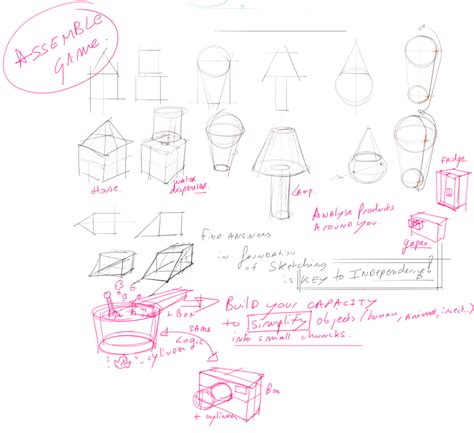 ASSEMBLE
GAME.
House
water
dispenser
Lamp.
Fridge
Analyse Products
Around you
gopro
Find Answers
in foundation
of Sketching
is Key to Independence?
+ Box
Build your capacity
to Simplify objects (human, animal, insect..)
into small chuncks.
SAME
Logic
cylinder
Box
+ cylinder